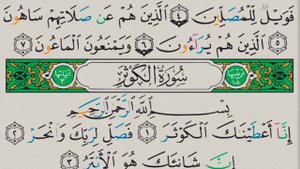 فَوَيْلٌ لِّلْمُصَلِّينَ ٤ الَّذِينَ هُمْ عَن صَلَاتِهِمْ سَاهُونَ
٥ الَّذِينَ هُمْ يُرَاءُونَ ٦ وَيَمْنَعُونَ الْمَاعُونَ ٧
سُورَةُ الْكَوْثَرِ
بِسْمِ اللَّهِ الرَّحْمَٰنِ الرَّحِيمِ
إِنَّا أَعْطَيْنَاكَ الْكَوْثَرَ ١ فَصَلِّ لِرَبِّكَ وَانْحَرْ ٢
إِنَّ شَانِئَكَ هُوَ الْأَبْتَرُ ٣